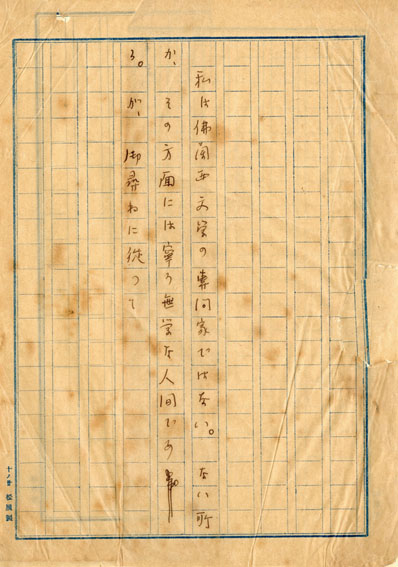 私は佛蘭西文学の専門家ではない。ない所
か、その方面には寧ろ無学な人間であ
る。が、御尋ねに従つて
十ノ廿 松屋製